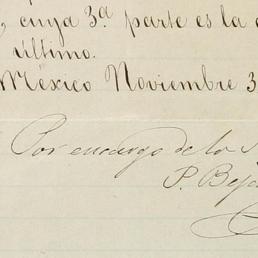 , cuya 3ª parte es la
último.
México Noviembre 3
Por encargo de la
P. Bej